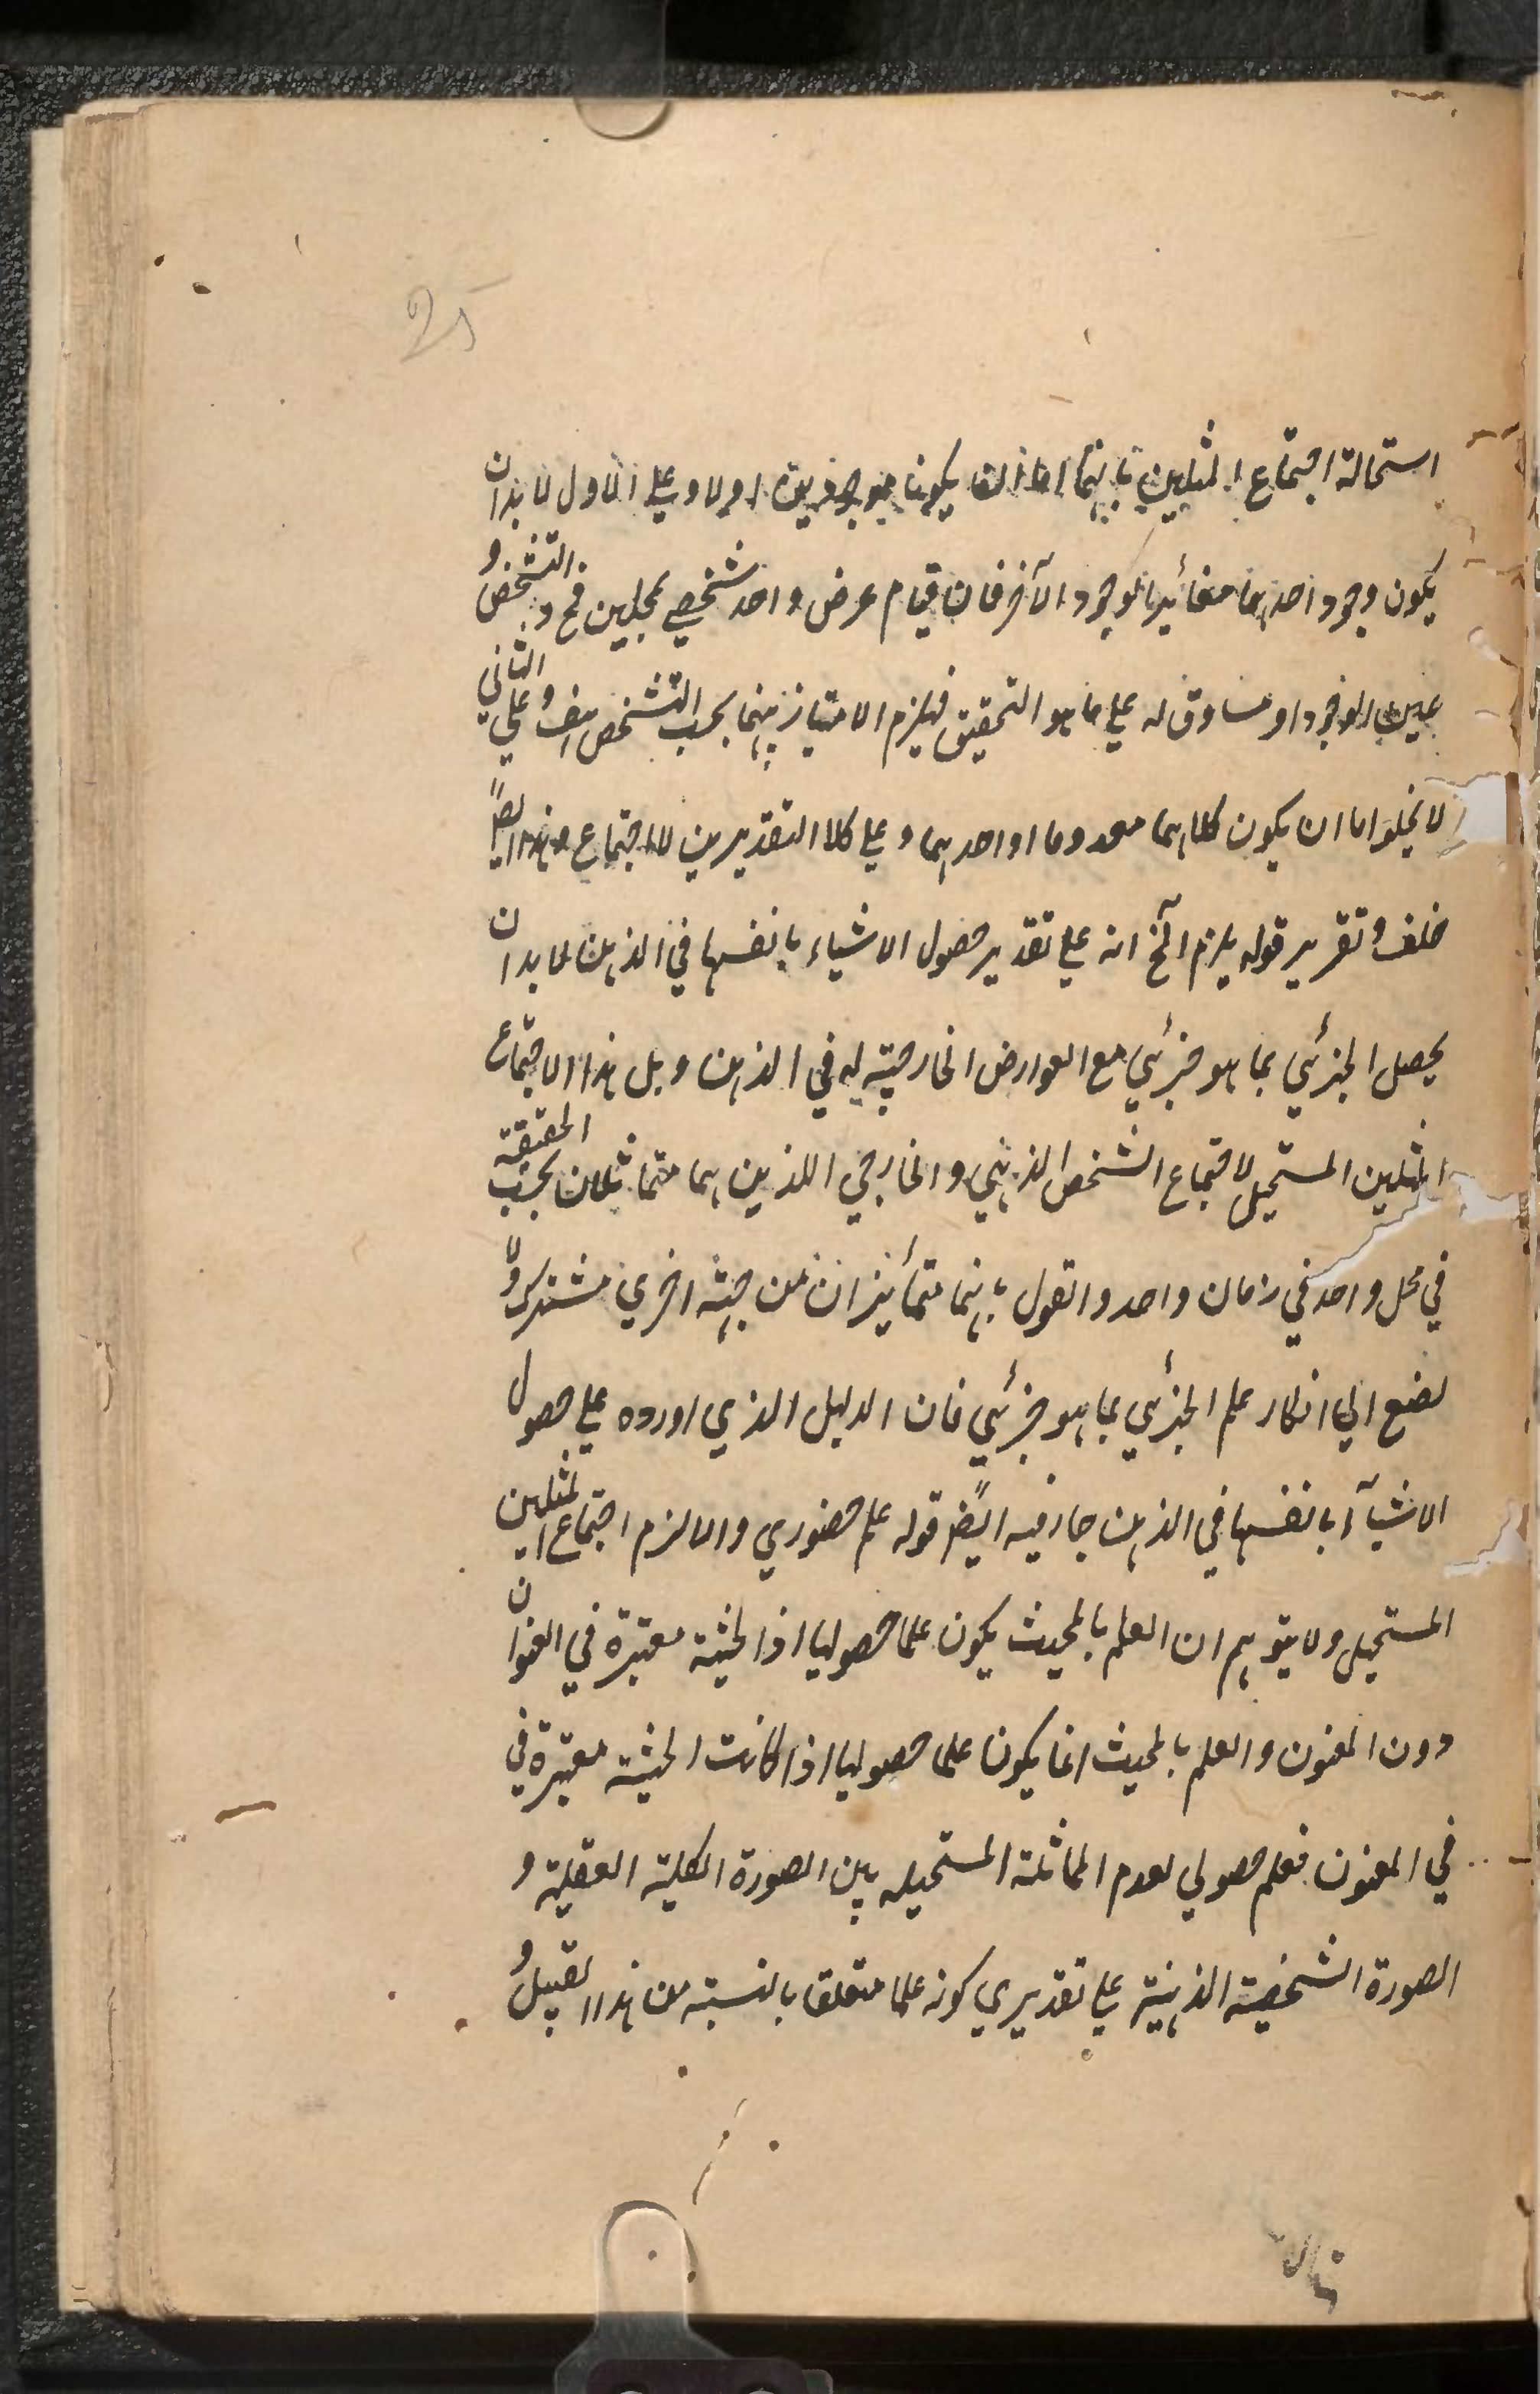 استحالة اجتماع المثلين بانهما اما ان يكونا موجودين اولا وعلى الاول لا بد ان
يكون وجود احدهما مغائيرا لوجود الآخر فان قيام عرض واحد شخصي بمحلين مح والتشخص
عين الوجود او مساوق له على ما هو التحقيق فيلزم الامتياز بينهما بحسب التشخص هف وعلى الثاني
لا يخلوا اما ان يكون كلاهما معدوما او احدهما وعلى كلا التقديرين لا اجتماع وهذا ايضًا
خلف وتقرير قوله يلزم آلخ انه على تقدير حصول الاشياء بانفسها في الذهن لا بد ان
يحصل الجزئي بما هو جزئي مع العوارض الخارجية له في الذهن وهل هذا الا اجتماع
المثلين المستحيل لاجتماع الشخص الذهني والخارجي اللذين هما متماثلان بحسب الحقيقة
في محل واحد في زمان واحد والقول بانهما متمائيزان من جهة اخرى مشترك ولا
تصنع الى انكار علم الجزئي بما هو جزئي فان الدليل الذي اورده على حصول
الاشيآء بانفسها في الذهن جار فيه ايضًا قوله علم حضوري والا لزم اجتماع المثلين
المستحيل ولا يتوهم ان العلم بالمحيث يكون علما حصوليا اذا الحيثية معتبرة في العنوان
دون المعنون والعلم بالمحيث انما يكونا علما حصوليا اذا كانت الحيثية معتبرة في
في المعنون فعلم حصولي لعدم المماثلة المستحيله بين الصورة الكلية العقلية و
الصورة الشخصية الذهنية على تقديري كونه علما متعلق بالنسبة من هذا القبيل و